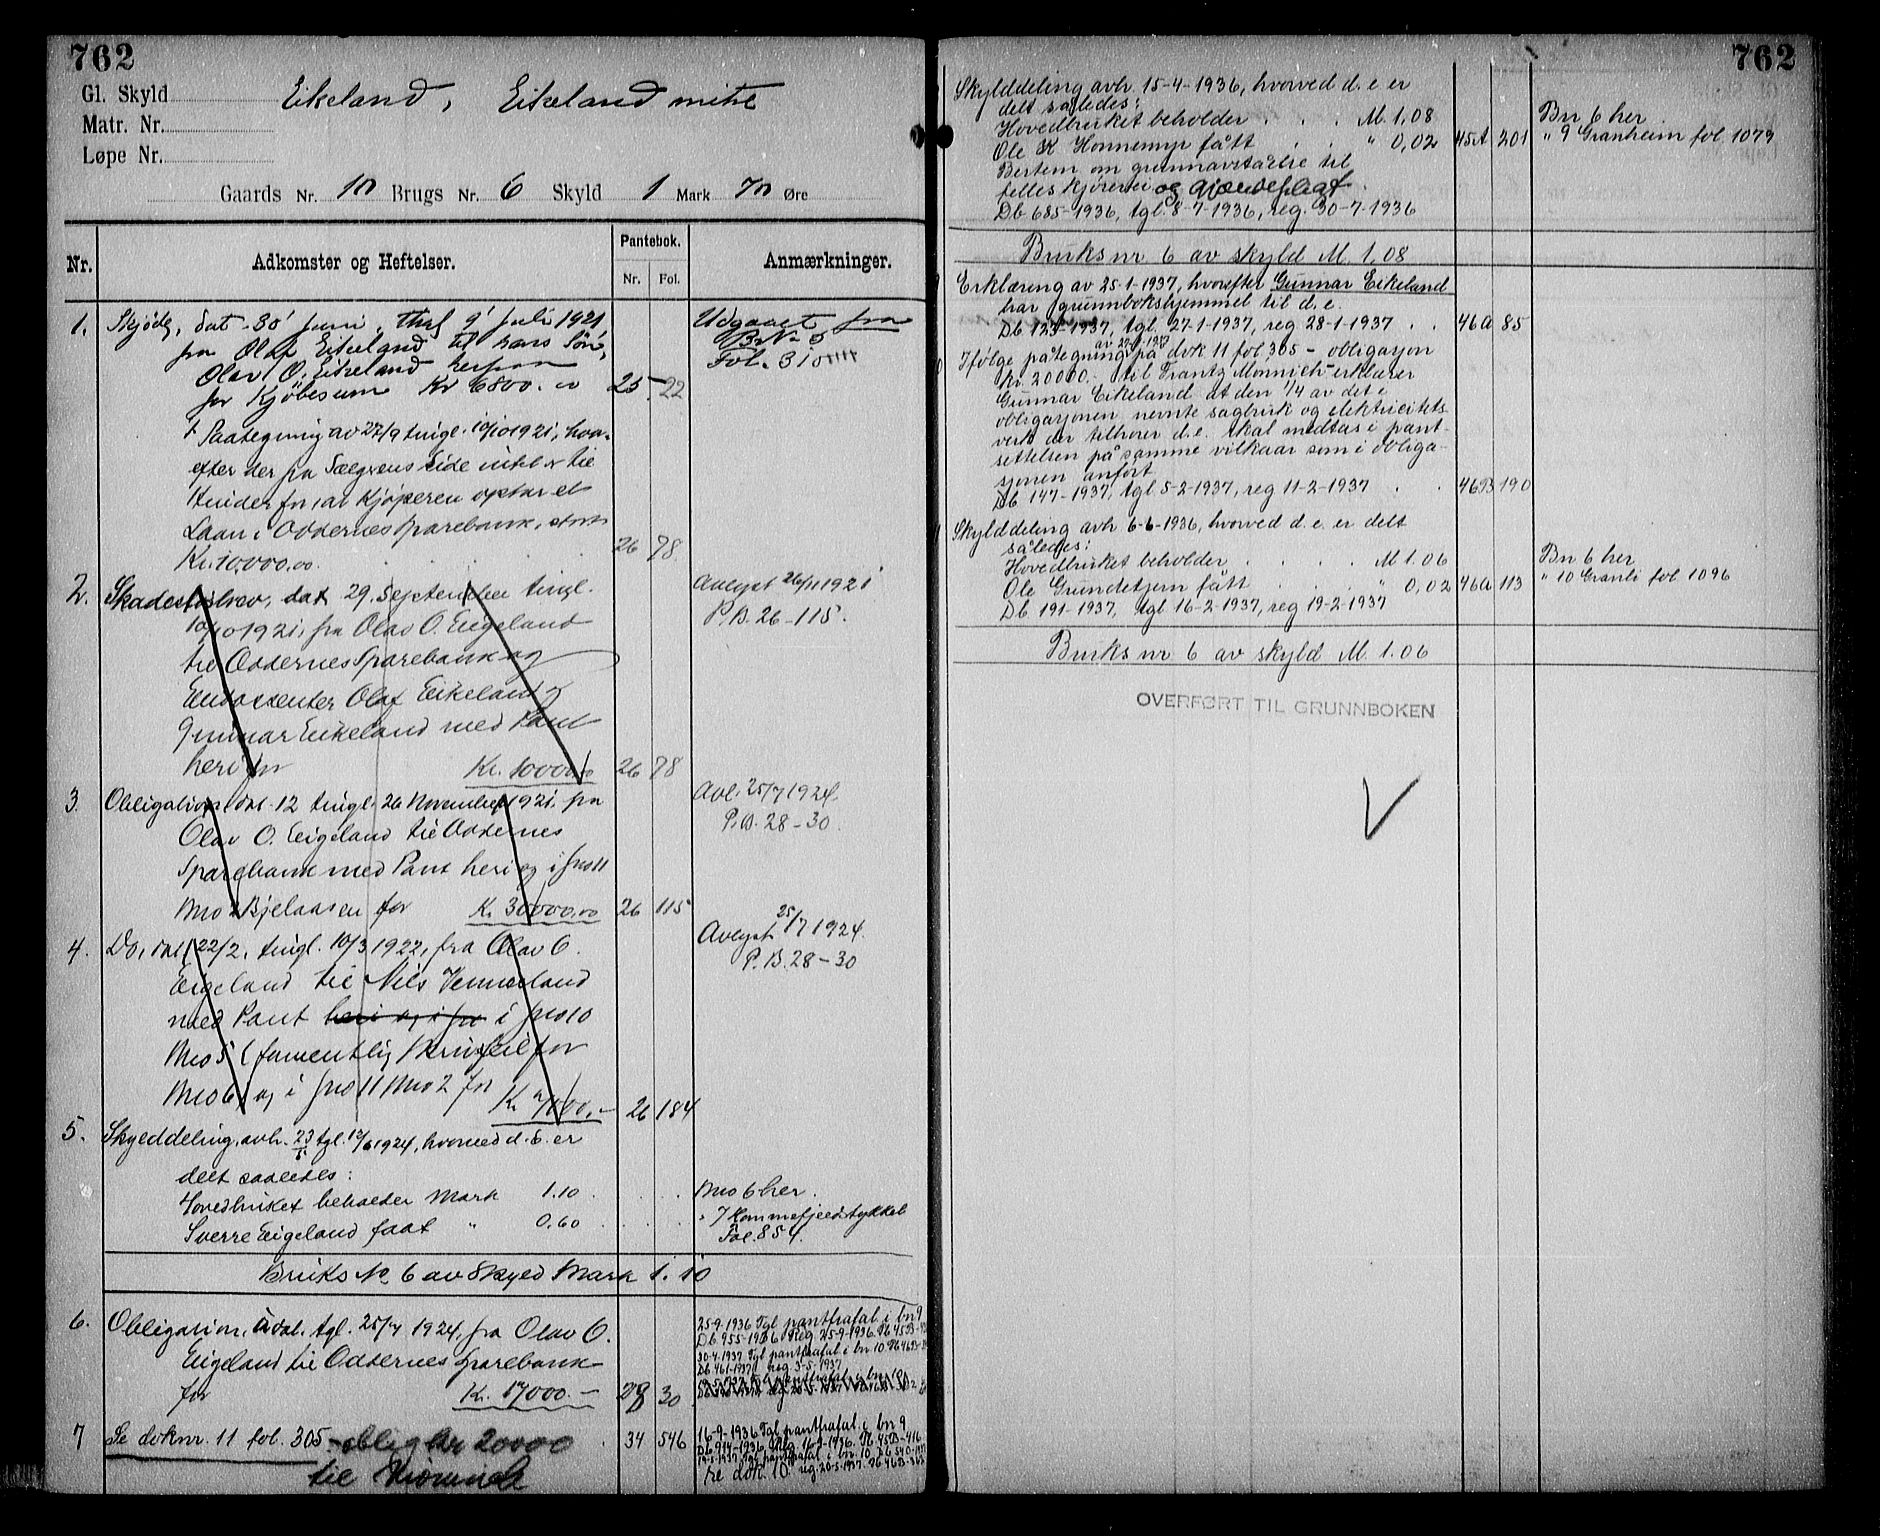 762
Gl. Skyld
Matr. Nr.
Løpe Nr.
Eikeland, Eikeland mitre
Gaards Nr. 10 Brugs Nr. 6 Skyld 1 Mark 70 Øre
Nr. Adkomster og Heftelser. Pantebok. Nr. Fol. Anmærkninger.
1. Skjøde, dat. 30' juni, thgl 9' juli 1921 Udgaaet fra
fra Olaf Eikeland til hans Søn, Br No 5
Olav O. Eikeland herpaa Fol. 310
for Kjøbesum Kr 6800.00 25 22
Paategning av 27/9 tingl. 10/10 1921, hvor-
efter der fra Sælgerens Side intet er til
Hinder for, at Kjøperen optar et
Laan i Oddernes Sparebank, stort
Kr. 10.000.00. 26 78
2. Skadesløsbrev, dat 29. September tingl. Avlyst 26/11 1921
10/10 1921, fra Olav O. Eigeland P.B. 26-115.
til Oddernes Sparebank og
Endossenter Olaf Eikeland og
Gunnar Eikeland med Pant
heri for Kr. 10000.00 26 78
3. Obligation, dat. 12 tingl. 26 November 1921. fra Avl. 25/7 1924.
Olav O. Eigeland til Oddernes P.B. 28-30.
Sparebank med Pant heri og i gno 11
bno 2 Bjelaasen for Kr. 30000.00 26 115
4. Do, dat 22/2, tingl. 10/3 1922, fra Olav O. Avlyst 25/7 1924.
Eigeland til Nils Vennerland P.B. 28-30
med Pant heri og i gno i gno 10
bno 5 (formentlig skrivfeil for
bno 6) og i gno 11 bno 2 for
Kr. 7000.- 26 184
5. Skylddeling, avh. 23/5 tgl. 12/6 1924, hvorved d. e. er
delt saaledes:
Hovedbruket beholder Mark 1.10 . . . . bno 6 her.
Sverre Eigeland faat " 0.60 . . . . " 7 Hommefjeldstykket
Fol. 854.
Bruks No 6 av Skyld Mark 1.10
6. Obligation, udat. tgl. 25/7 1924, fra Olav O. 25-9-1936 Tgl pantfrafal i bn 9
Eigeland til Oddernes Sparebank Db 955-1936 Reg 25-9-1936 Pb 45B
30-4-1937 Tgl pantfrafal i bn 10 Pb 46B
Db 461-1937 reg 3-5-1937
for Kr. 17000.- 28 30
7 Se doknr. 11 fol. 305 - oblig kr 20000 . 34 546 16-9-1936 Tgl pantfrafal i bn 9
til Mönnich Db 914-1936 Reg 16-9-1936. Pb 45B-416
Tgl pantfrafal i bn. 10. Db 540-1937
se dok. 10 reg. 20-5-1937. Pb 46B-
762
Skylddeling avh. 15-4-1936, hvorved d. e er
delt således:
Hovedbruket beholder . . . M. 1,08 Bn 6 her
Ole K Honnemyr fått . . " 0,02 45A 201 " 9 Granheim fol 1079
Bestem om grunnavståelse til
felles kjørevei og gjærdeplegt
Db 685-1936, tgl. 8-7-1936, reg. 30-7-1936
Bruks nr 6 av skyld M. 1,08
Erklæring av 25-1-1937, hvorefter Gunnar Eikeland
har grunnbokshjemmel til d.e.
Db 123-1937, tgl. 27-1-1937, reg 28-1-1937 . . 46A 85
Ifølge påtegning på dok 11 fol 305 - obligasjon
kr. 20000.- til Frantz Mönnich erklærer
Gunnar Eikeland at den 1/4 av det i
obligasjonen nevnte sagbruk og elektricitets-
verk der tilhører d.e. skal medtas i pant-
settelsen på samme vilkaar som i obliga-
sjonen anført
Db 147-1937, tgl 5-2-1937, reg 11-2-1937 . . 46B 190
Skylddeling avh 6-6-1936, hvorved d. e. er delt
således:
Hovedbruket beholder . . . . M 1.06 Bn 6 her
Ole Grundetjern fått . . . " 0,02 46A 113 " 10 Granli fol 1096
Db 191-1937, tgl 16-2-1937, reg 19-2-1937
Bruks nr 6 av skyld M. 1.06
OVERFØRT TIL GRUNNBOKEN